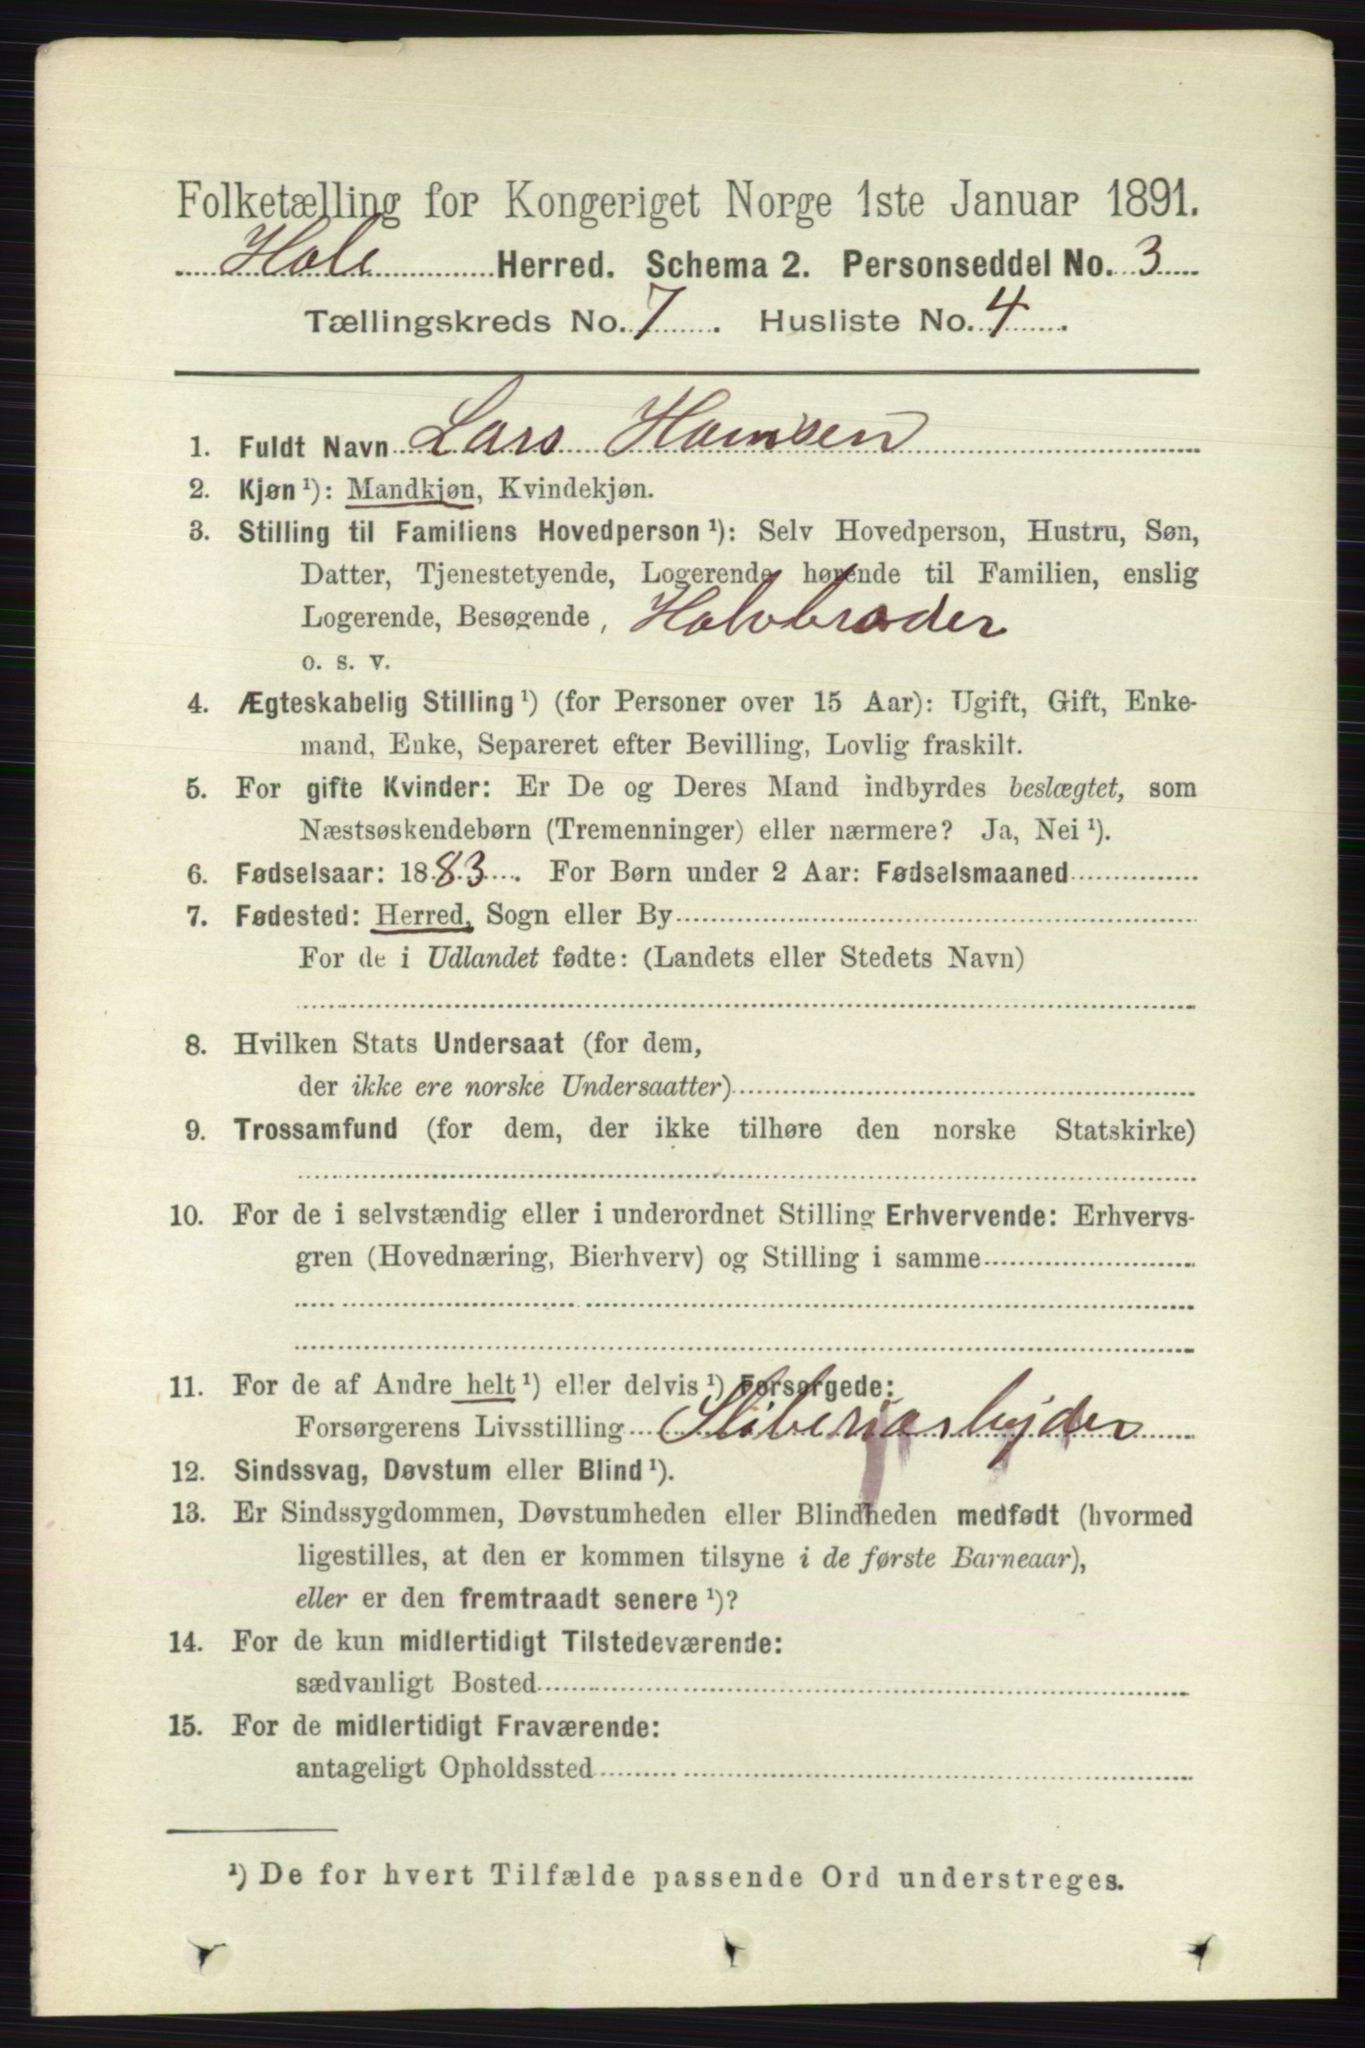 Folketælling for Kongeriget Norge 1ste Januar 1891.
Hole Herred. Schema 2. Personseddel No. 3
Tællingskreds No. 7. Husliste No. 4.
1. Fuldt Navn Lars Hansen
2. Kjøn ¹): Mandkjøn, Kvindekjøn.
3. Stilling til Familiens Hovedperson ¹): Selv Hovedperson, Hustru, Søn,
Datter, Tjenestetyende, Logerende hørende til Familien, enslig
Logerende, Besøgende, Halvbroder
o. s. v.
4. Ægteskabelig Stilling ¹) (for Personer over 15 Aar): Ugift, Gift, Enke-
mand, Enke, Separeret efter Bevilling, Lovlig fraskilt.
5. For gifte Kvinder: Er De og Deres Mand indbyrdes beslægtet, som
Næstsøskendebørn (Tremenninger) eller nærmere? Ja, Nei ¹).
6. Fødselsaar: 1883. For Børn under 2 Aar: Fødselsmaaned
7. Fødested: Herred, Sogn eller By
For de i Udlandet fødte: (Landets eller Stedets Navn)
8. Hvilken Stats Undersaat (for dem,
der ikke ere norske Undersaatter)
9. Trossamfund (for dem, der ikke tilhøre den norske Statskirke)
10. For de i selvstændig eller i underordnet Stilling Erhvervende: Erhvervs-
gren (Hovednæring, Bierhverv) og Stilling i samme
11. For de af Andre helt ¹) eller delvis ¹) Forsørgede:
Forsørgerens Livsstilling Sliberiarbejder
12. Sindssvag, Døvstum eller Blind ¹).
13. Er Sindssygdommen, Døvstumheden eller Blindheden medfødt (hvormed
ligestilles, at den er kommen tilsyne i de første Barneaar),
eller er den fremtraadt senere ¹)?
14. For de kun midlertidigt Tilstedeværende:
sædvanligt Bosted
15. For de midlertidigt Fraværende:
antageligt Opholdssted
¹) De for hvert Tilfælde passende Ord understreges.